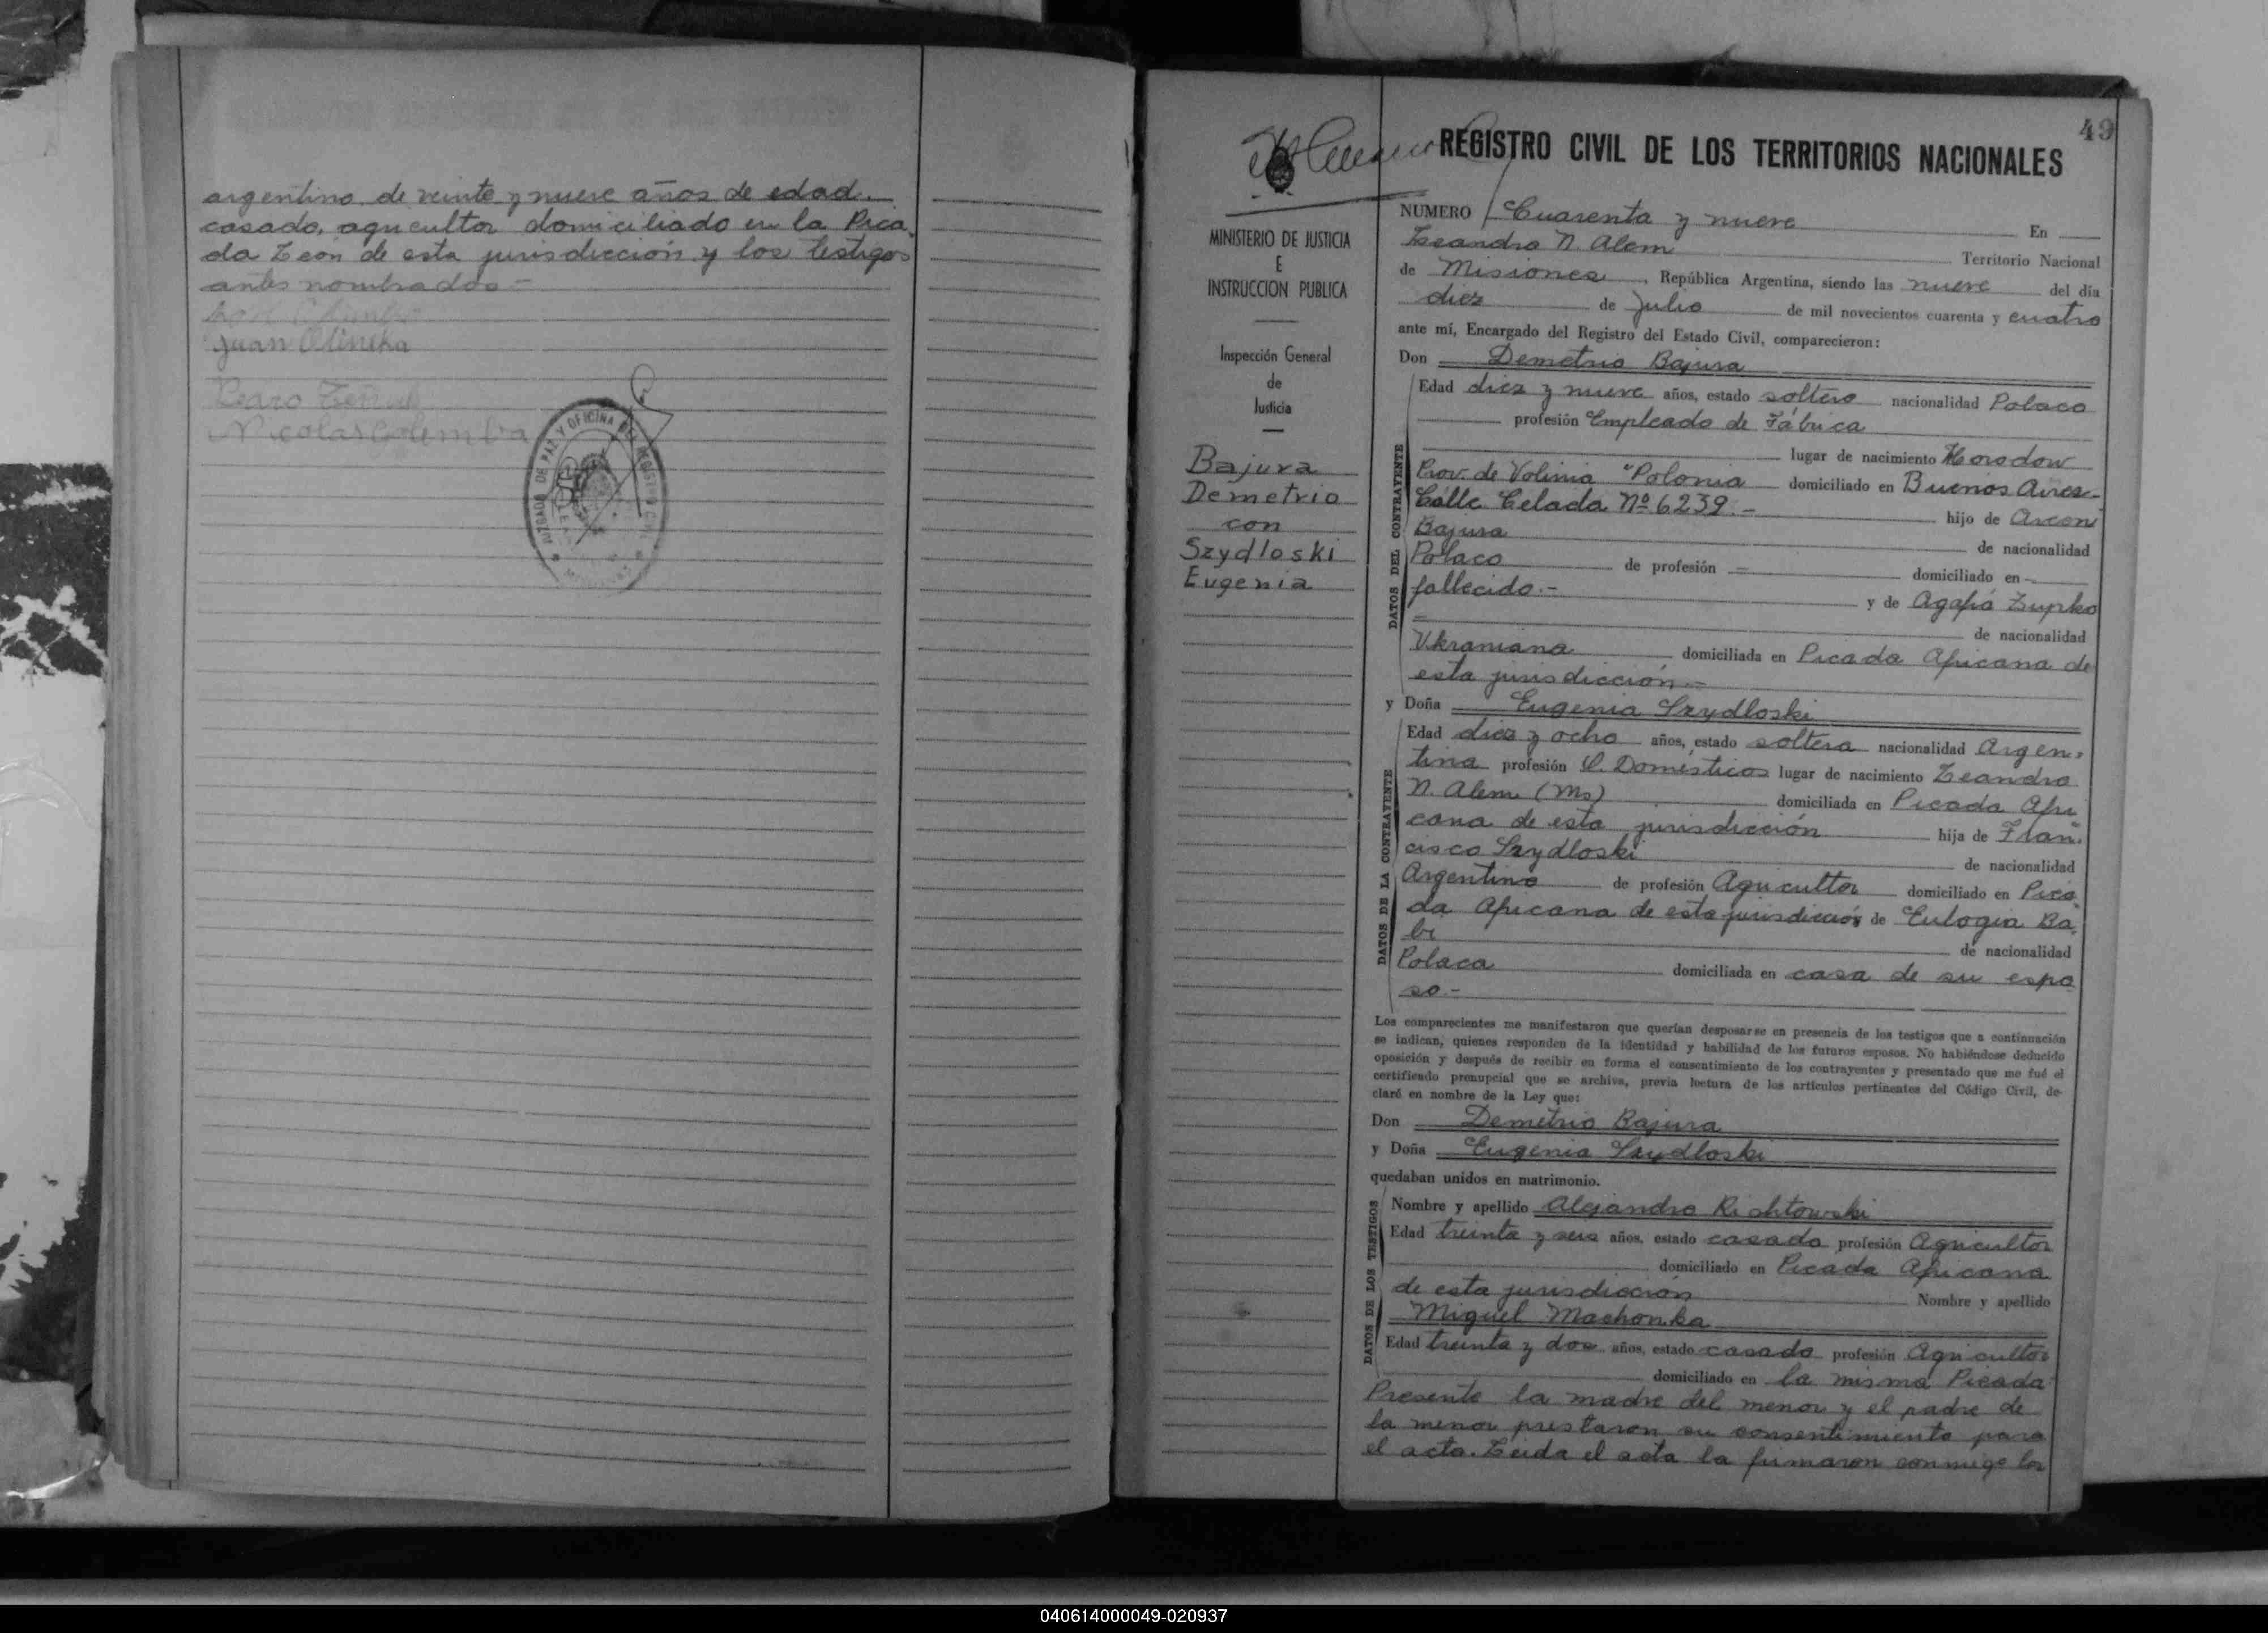 argentino, de veinte y nueve años de edad.
casado, agricultor domiciliado en la Pica
da León de esta jurisdicción y los testigos
antes nombrados -
Juan Olineka
Pedro
Nicolas Golemba
JUZGADO DE PAZ Y OFICINA DEL REGISTRO CIVIL
49
REGISTRO CIVIL DE LOS TERRITORIOS NACIONALES
MINISTERIO DE JUSTICIA
E
INSTRUCCION PUBLICA
Inspección General
de
Justicia
Bajura
Demetrio
con
Szydloski
Eugenia
NUMERO Cuarenta y nueve En
Leandro N. Alem Territorio Nacional
de Misiones, República Argentina, siendo las nueve del día
diez de Julio de mil novecientos cuarenta y cuatro
ante mí, Encargado del Registro del Estado Civil, comparecieron:
Don Demetrio Bajura
DATOS DEL CONTRAYENTE
Edad diez y nueve años, estado soltero nacionalidad Polaco
profesión Empleado de Fábrica
lugar de nacimiento Horodow
Prov. de Volinia "Polonia domiciliado en Buenos Aires-
Calle Celada Nº 6239.- hijo de Arcon
Bajura de nacionalidad
Polaco de profesión — domiciliado en -
fallecido.- y de Agafia Zupko
- de nacionalidad
Ukraniana domiciliada en Picada Africana de
esta jurisdicción.-
y Doña Eugenia Szydloski
DATOS DE LA CONTRAYENTE
Edad diez y ocho años, estado soltera nacionalidad Argen-
tina profesión Q. Domésticos lugar de nacimiento Leandro
N. Alem (Ms) domiciliada en Picada Afri
cana de esta jurisdicción hija de Fran-
cisco Szydloski de nacionalidad
Argentino de profesión Agricultor domiciliado en Pica
da Africana de esta jurisdicción y de Eulogia Ba-
bi de nacionalidad
Polaca domiciliada en casa de su espo
so.-
Los comparecientes me manifestaron que querían desposarse en presencia de los testigos que a continuación
se indican, quienes responden de la identidad y habilidad de los futuros esposos. No habiéndose deducido
oposición y después de recibir en forma el consentimiento de los contrayentes y presentado que me fué el
certificado prenupcial que se archiva, previa lectura de los artículos pertinentes del Código Civil, de-
claré en nombre de la Ley que:
Don Demetrio Bajura
y Doña Eugenia Szydloski
quedaban unidos en matrimonio.
DATOS DE LOS TESTIGOS
Nombre y apellido Alejandro Richtowski
Edad treinta y seis años, estado casado profesión Agricultor
domiciliado en Picada Africana
de esta jurisdicción Nombre y apellido
Miguel Machonka
Edad treinta y dos años, estado casado profesión Agricultor
domiciliado en la misma Picada
Presente la madre del menor y el padre de
la menor prestaron su consentimiento para
el acto. Leida el acta la firmaron conmigo los
040614000049-020937